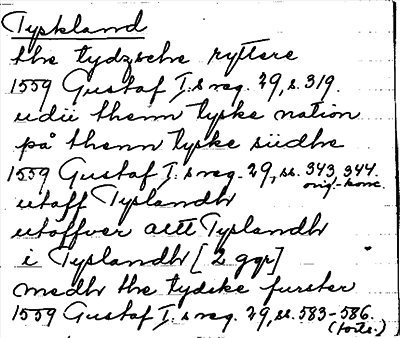 Tyskland
the tydzsche ryttere
1559 Gustaf I:s reg. 29, s. 319.
udii thenn tyske nation
på thenn tyske siidhe
1559 Gustaf I:s reg. 29, ss. 343, 344.
orig.-konc.
utaff Tyslandh
utoffver altt Tyslandh
i Tyslandh [2 ggr]
medh the tydske furster
1559 Gustaf I:s reg. 29, ss. 583-586.
(forts.)